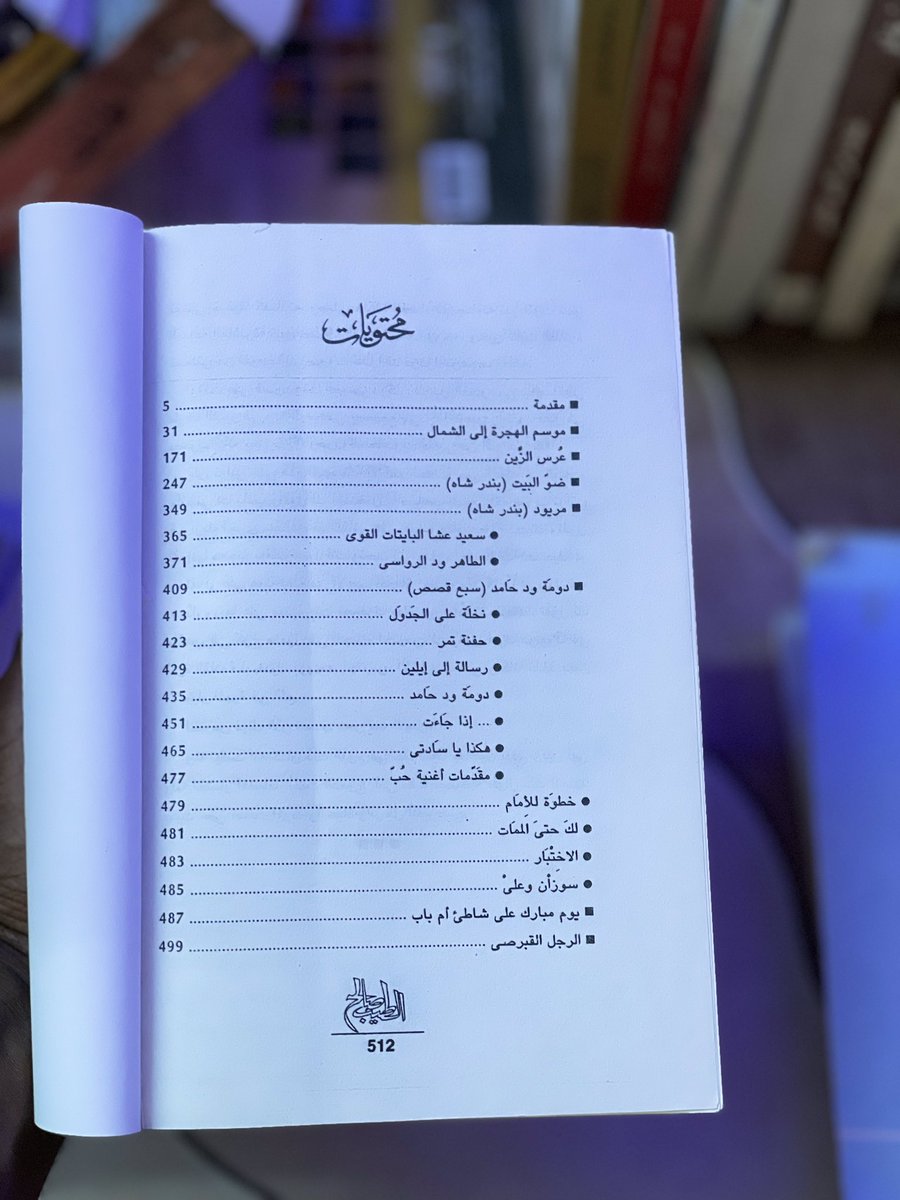 مُحتويات
■ مقدمة ........ 5
■ موسم الهجرة إلى الشمال ........ 31
■ عُرس الزَّين ........ 171
■ ضوّ البَيت (بندر شاه) ........ 247
■ مريود (بندر شاه) ........ 349
● سعيد عشا البايتات القوى ........ 365
● الطاهر ود الرواسى ........ 371
■ دومَة ود حَامد (سبع قصص) ........ 409
● نخلَة على الجَدوَل ........ 413
● حفنة تمر ........ 423
● رسالة إلى إيلين ........ 429
● دومَة ود حَامد ........ 435
● ... إذا جَاءَت ........ 451
● هكذا يا سَادتى ........ 465
● مقَدّمات أغنية حُبّ ........ 477
● خطوَة للأِمَام ........ 479
● لكَ حتىَ المَمَات ........ 481
● الاختِْبَار ........ 483
● سوزِاْن وعلىْ ........ 485
■ يوم مبارك على شاطئ أم باب ........ 487
■ الرجل القبرصى ........ 499
الطيب صالح
512